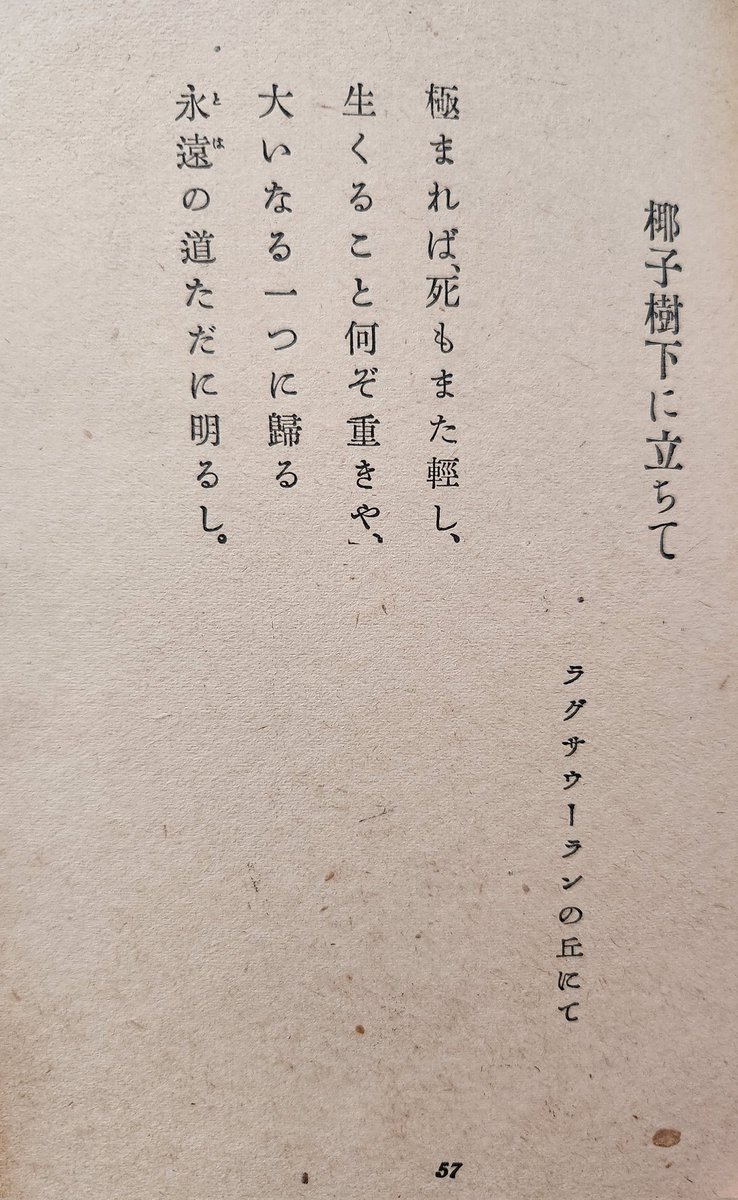 椰子樹下に立ちて
ラグサウーランの丘にて
極まれば、死もまた輕し、
生くること何ぞ重きや、」
大いなる一つに歸る
永遠の道ただに明るし。
とは
57